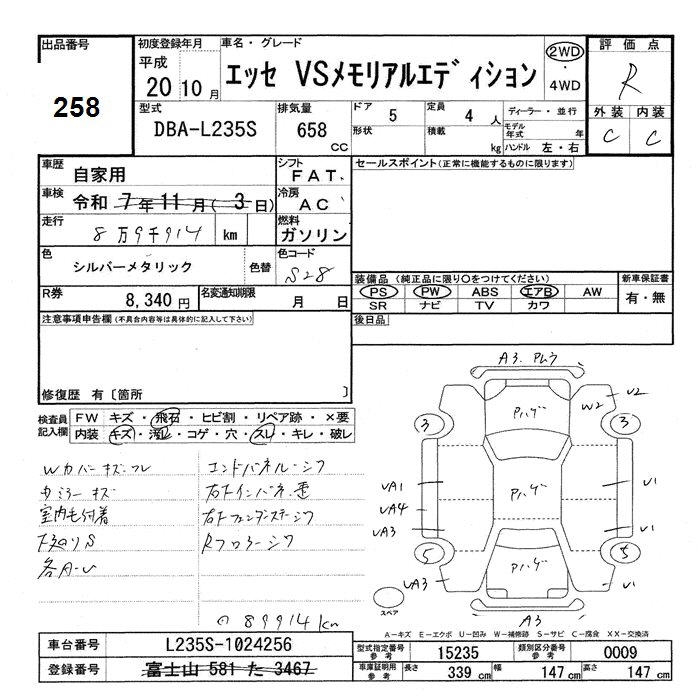 出品番号
258
初度登録年月
平成
20 10 月
車名・グレード
エッセ VSメモリアルエディション
2WD
・
4WD
評価点
R
外装 内装
C C
型式
DBA-L235S
排気量
658
CC
ドア 5
形状
定員 4 人
積載 kg
ディーラー・並行
モデル年式 年
ハンドル 左・右
車歴 自家用
車検 令和 7年11月(3日)
走行 8万9千914 km
色 シルバーメタリック 色替
シフト FAT
冷房 AC
燃料 ガソリン
色コード S28
R券 8,340円
名変通知期限 月 日
セールスポイント(正常に機能するものに限ります)
装備品(純正品に限り○をつけてください)
PS PW ABS エアB AW
SR ナビ TV カワ
新車保証書
有・無
後日品
注意事項申告欄(不具合内容等は具体的に記入して下さい)
修復歴 有〔箇所 〕
検査員記入欄
FW キズ・飛石・ヒビ割・リペア跡・×要
内装 キズ・汚レ・コゲ・穴・スレ・キレ・破レ
Wカバーキズ.
カミラーキズ
室内毛付着
各A-U
エンドパネル-シワ
右インパネ
Rフロアーシワ
89914km
A3.
U2
W2
3
3
UA1
UA4
UA3
U1
U1
5
5
UA3
U1
A3
スペア
A-キズ E-エクボ U-凹み W-補修跡 S-サビ C-腐食 XX-交換済
車台番号 L235S-1024256
登録番号 富士山 581 た 3467
型式指定番号 参考 15235
類別区分番号 参考 0009
車庫証明用 参考 長さ 339 cm 幅 147 cm 高さ 147 cm